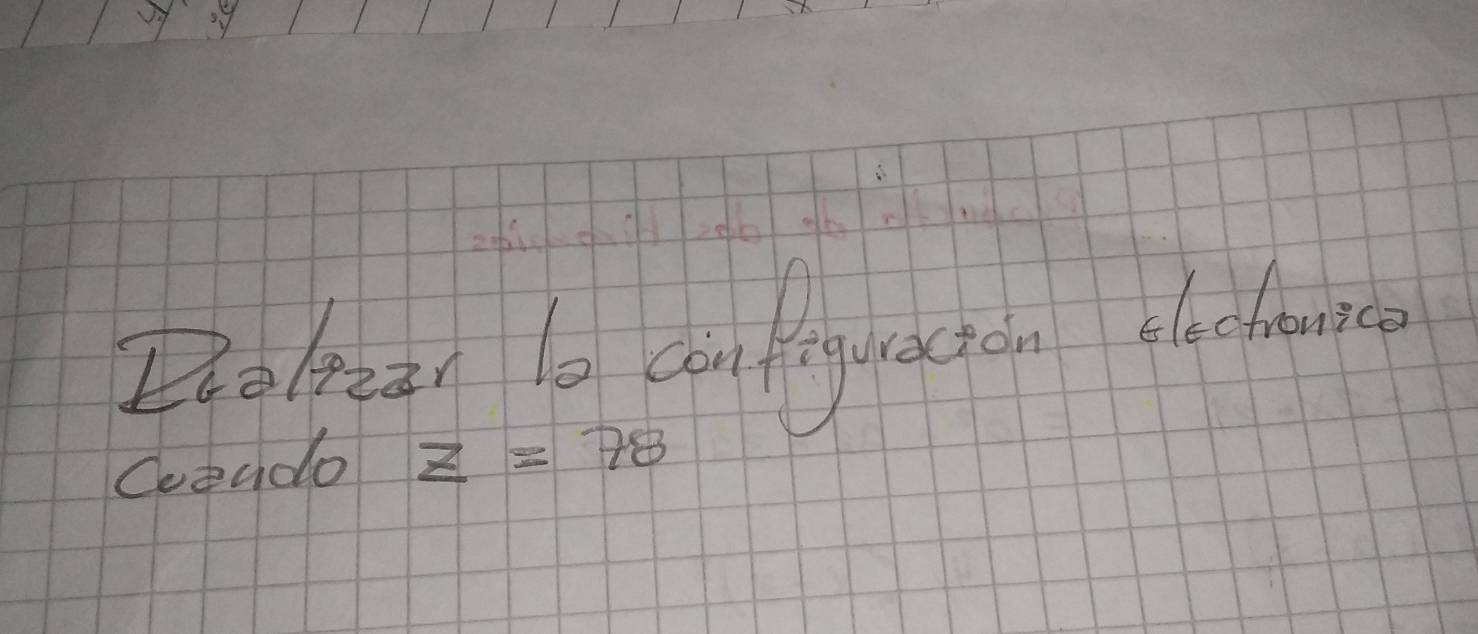 Realizar la configuración electronica
Cuando z = 78